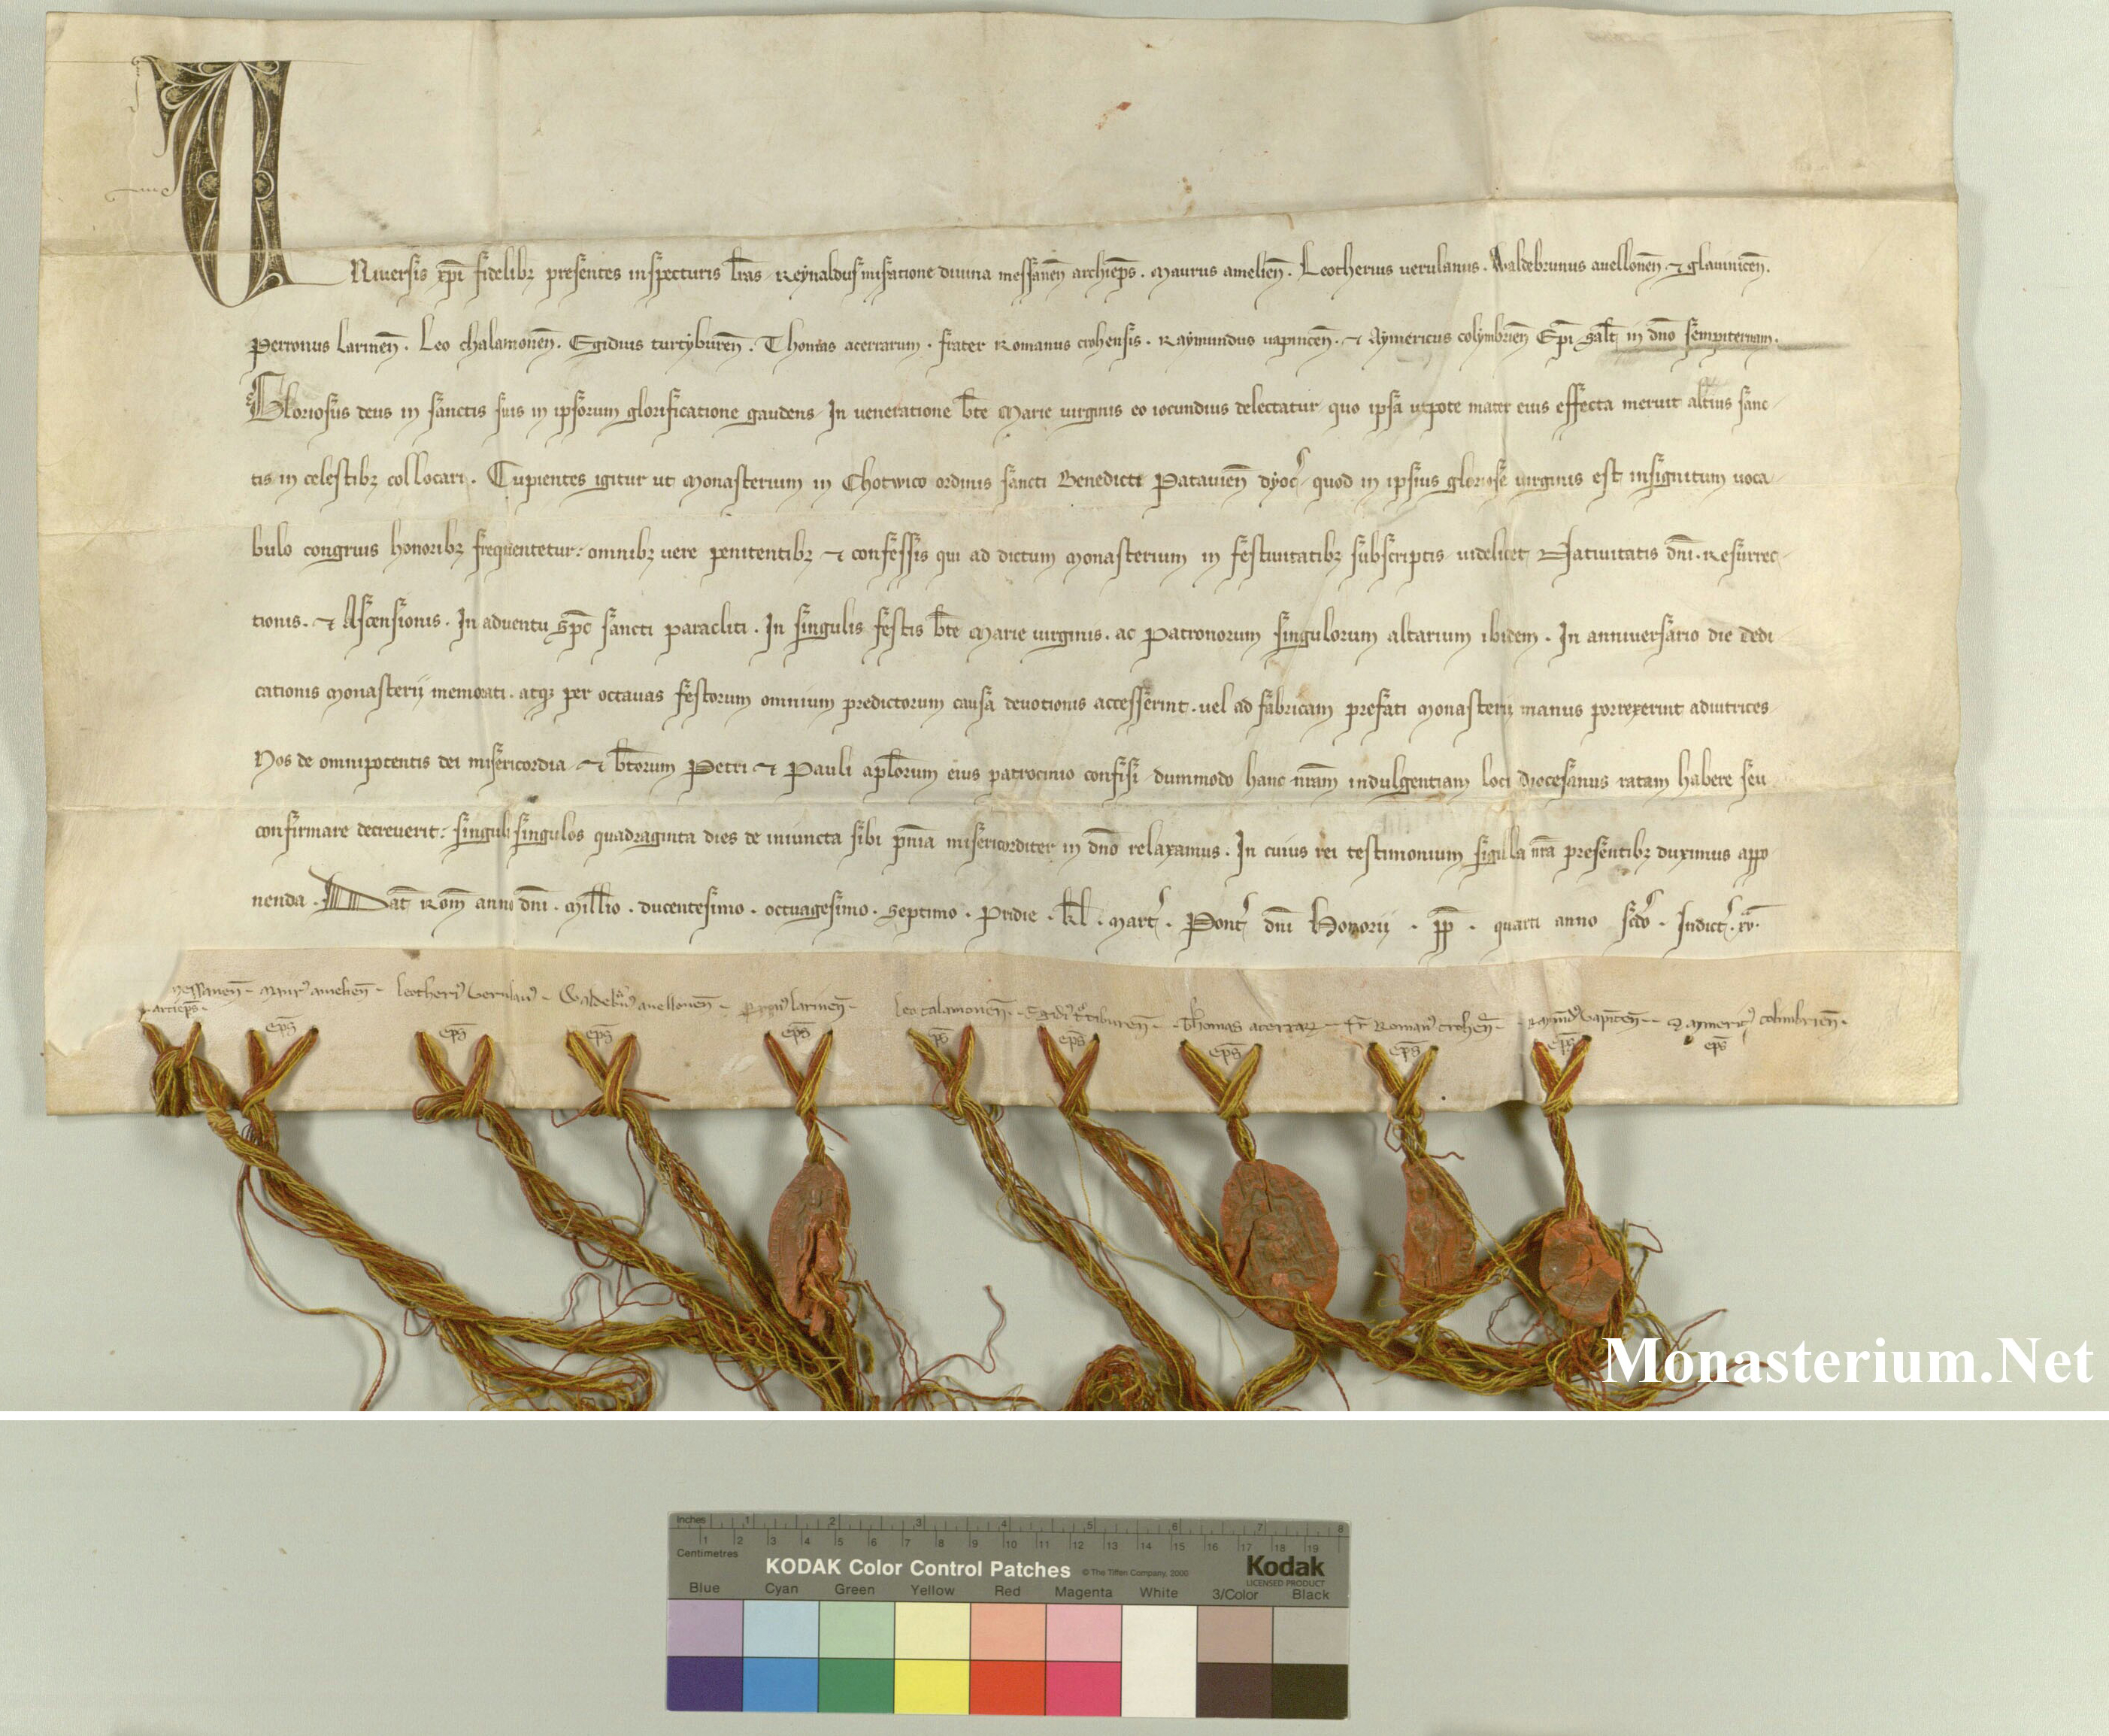 Uniuersis xpi fidelibꝫ presentes inspecturis l̄ras Reynaldus miseratione diuina messanen̄ archiep̄s . Maurus amelien̄ . Leotherius uerulanus . Waldebrunus auellonen̄ . ⁊ glauinicen̄ .
Perronus larinen̄ . Leo chalamonen̄ . Egidius turtyburen̄ . Thomas acerrarum . frater Romanus crohensis . Raymundus uapincen̄ . ⁊ Aymericus colymbrien̄ Ep̄i sal̄t in dn̄o sempiternam .
Gloriosus deus in sanctis suis in ipsorum glorificatione gaudens / In ueneratione b̄te Marie uirginis eo iocundius delectatur / quo ipsa utpote mater eius effecta meruit altius sanc-
tis in celestibꝫ collocari . Cupientes igitur ut Monasterium in Chotwico ordinis sancti Benedicti Patauien̄ dyoc̄ / quod in ipsius gloriose uirginis est insignitum uoca-
bulo congruis honoribꝫ frequentetur : omnibꝫ uere penitentibꝫ ⁊ confessis qui ad dictum Monasterium in festiuitatibꝫ subscriptis uidelicet Natiuitatis dn̄i . Resurrec-
tionis . ⁊ Ascensionis . In aduentu sp̄c sancti paracliti . In singulis festis b̄te Marie uirginis . ac Patronorum singulorum altarium ibidem . In anniuersario die dedi-
cationis Monasterij memorati . atqꝫ per octauas festorum omnium predictorum causa deuotionis accesserint . uel ad fabricam prefati Monasterij manus porrexerint adiutrices /
Nos de omnipotentis dei misericordia ⁊ b̄torum Petri ⁊ Pauli apl̄orum eius patrocinio confisi / dummodo hanc nr̄am indulgentiam loci diocesanus ratam habere seu
confirmare decreuerit : singuli singulos quadraginta dies de iniuncta sibi pn̄ia misericorditer in dn̄o relaxamus . In cuius rei testimonium sigilla nr̄a presentibꝫ duximus appo-
nenda . Dat̄ Rom̄ anno dn̄i . Mill̄io . ducentesimo . octuagesimo . septimo . Pridie . kl̄ . Mart̄ . Pont̄ dn̄i Honorij . pp̄ . quarti anno sc̄do . Indict̄ . xv̄ .
Messanen̄ - Maur᾽ amelien̄ - Leotheri᾽ Verulan᾽ - Waldebr᾽ auellonen̄ - Perron᾽ larinen̄ - Leo calamonen̄ - Egidi᾽ t᾽tiburen̄ - Thomas acerrarꝝ - fr̄ Roman᾽ crohen̄ - Raymūd᾽ Vapicen̄ - Aymeric᾽ colinbrien̄ .
archiep̄s . ep̄s ep̄s ep̄s ep̄s ep̄s ep̄s ep̄s ep̄s ep̄s ep̄s
Monasterium.Net
Inches 1 2 3 4 5 6 7 8
1 2 3 4 5 6 7 8 9 10 11 12 13 14 15 16 17 18 19
Centimetres
KODAK Color Control Patches © The Tiffen Company, 2000 Kodak
LICENSED PRODUCT
Blue Cyan Green Yellow Red Magenta White 3/Color Black